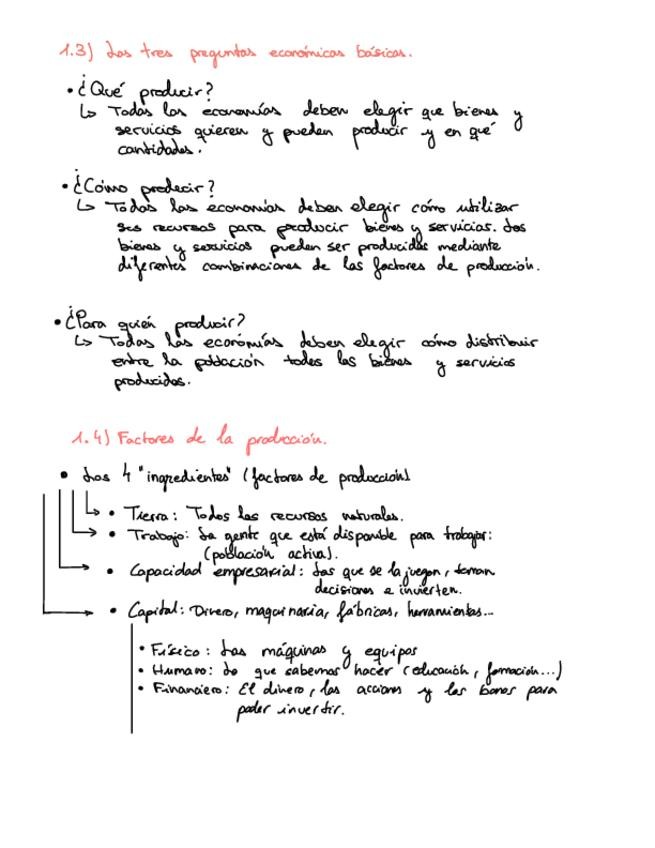 1.3) Las tres preguntas económicas básicas.
• ¿Qué producir?
↳ Todas las economías deben elegir que bienes y
servicios quieren y pueden producir y en qué
cantidades.
• ¿Cómo producir?
↳ Todas las economías deben elegir cómo utilizar
sus recursos para producir bienes y servicios. Los
bienes y servicios pueden ser producidos mediante
diferentes combinaciones de los factores de producción.
• ¿Para quién producir?
↳ Todas las economías deben elegir cómo distribuir
entre la población todos los bienes y servicios
producidos.
1.4) Factores de la producción.
• Los 4 "ingredientes" (factores de producción)
• Tierra: Todos los recursos naturales.
• Trabajo: La gente que está disponible para trabajar:
(población activa).
• Capacidad empresarial: Los que se la juegan, toman
decisiones e invierten.
• Capital: Dinero, maquinaria, fábricas, herramientas...
• Físico: Las máquinas y equipos
• Humano: Lo que sabemos hacer (educación, formación...)
• Financiero: El dinero, las acciones y los bonos para
poder invertir.